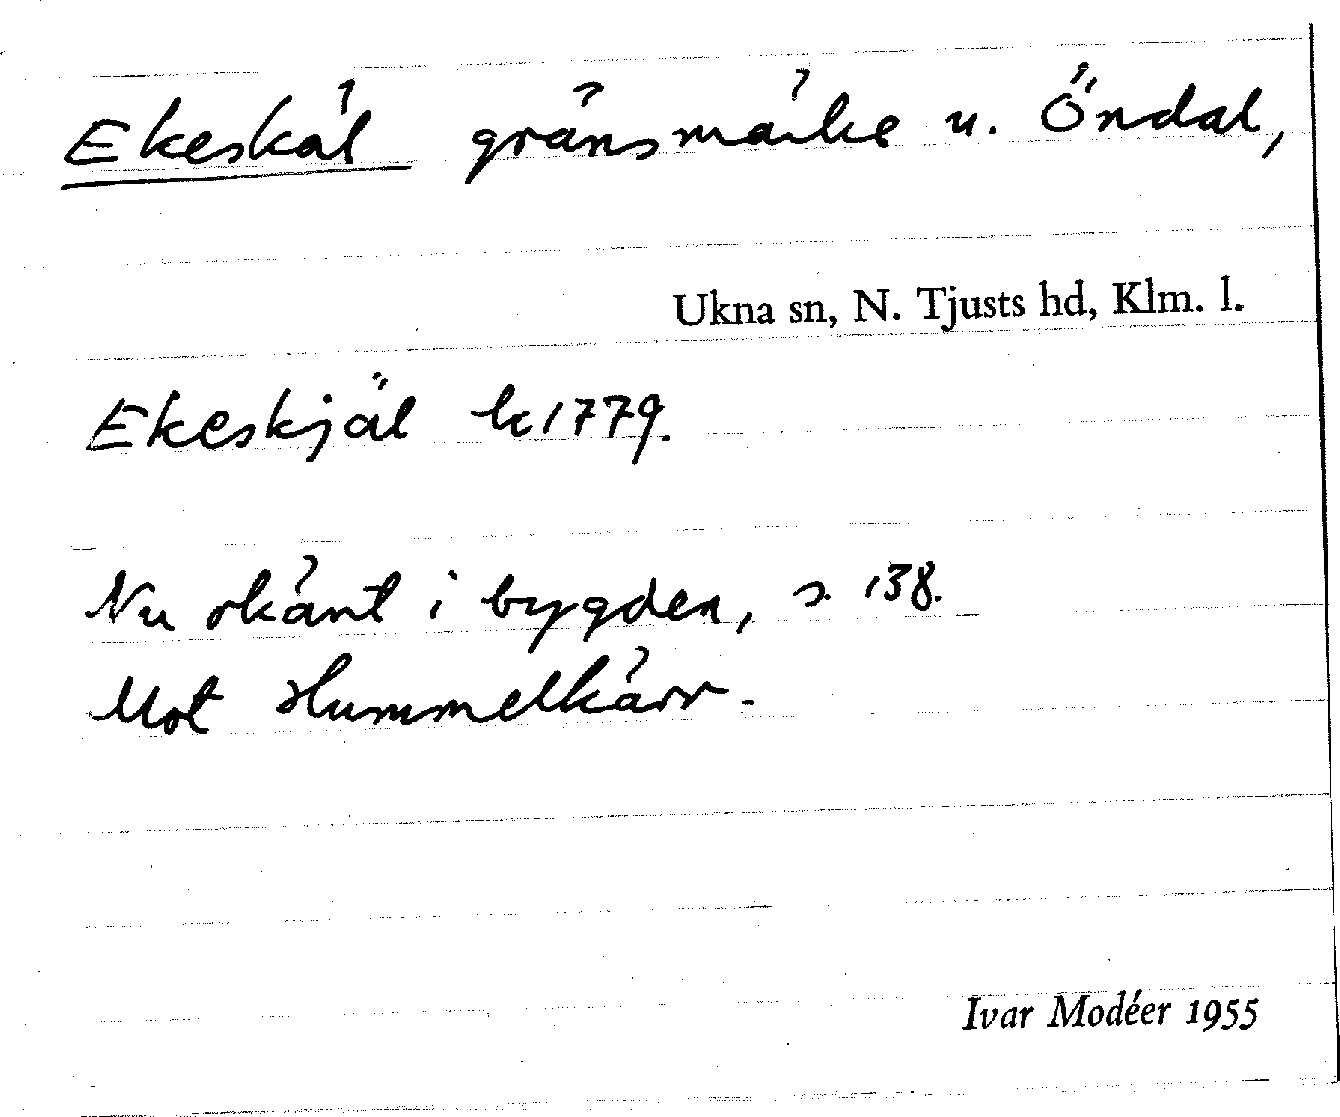 Ekeskäl gränsmärke u. Öndal,
Ukna sn, N. Tjusts hd, Klm. l.
Ekeskjäl k 1779.
Nu okänt i bygden, s. 138.
Mot Hummelkärr.
Ivar Modéer 1955